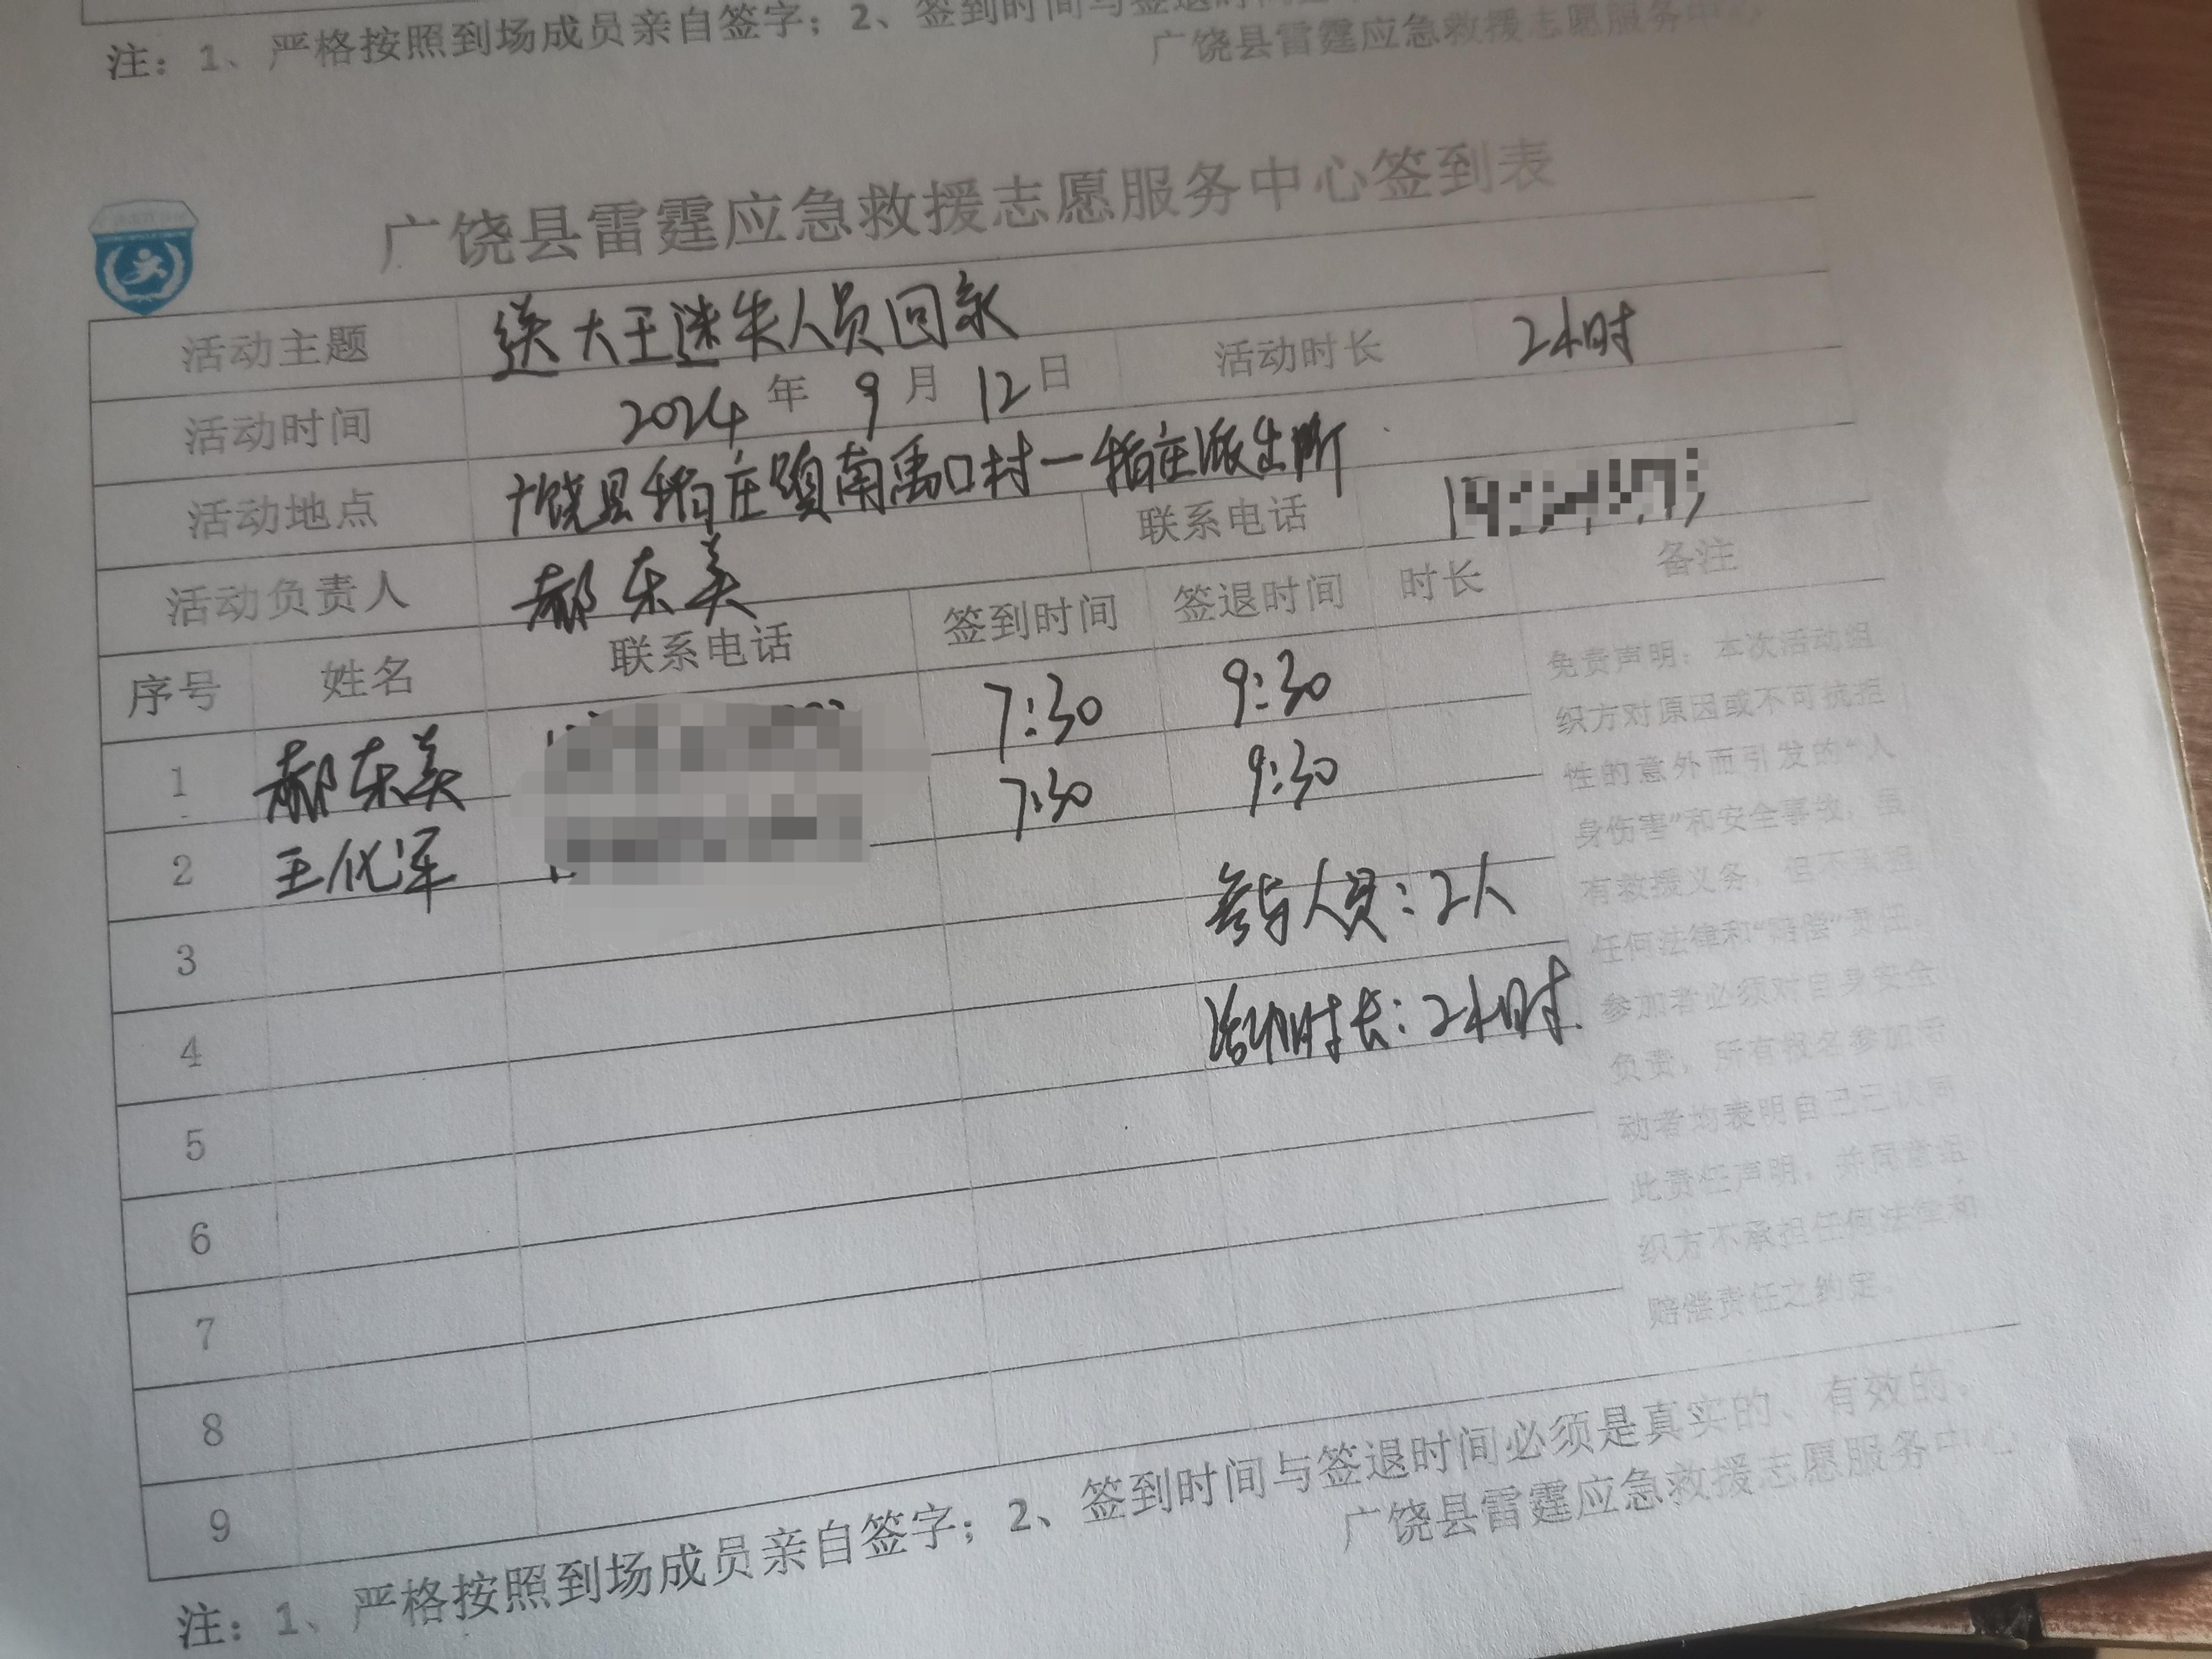 注：1、严格按照到场成员亲自签字；2、签到时间与签退时间
广饶县雷霆应急救援志愿服务中心
广饶县雷霆应急救援志愿服务中心签到表
活动主题 送大王迷失人员回家
活动时间 2024年9月12日 活动时长 2小时
活动地点 广饶县稻庄镇南禹口村一稻庄派出所
活动负责人 郝东美 联系电话
序号 姓名 联系电话 签到时间 签退时间 时长 备注
1 郝东美 7:30 9:30
2 王化军 7:30 9:30
3 参与人员：2人
4 活动时长：2小时.
5
6
7
8
9
免责声明：本次活动组
织方对原因或不可抗拒
性的意外而引发的“人
身伤害”和安全事故，虽
有救援义务，但不承担
任何法律和“赔偿”责任。
参加者必须对自身安全
负责，所有报名参加活
动者均表明自己已认同
此责任声明，并同意组
织方不承担任何法律和
赔偿责任之约定。
注：1、严格按照到场成员亲自签字；2、签到时间与签退时间必须是真实的、有效的、
广饶县雷霆应急救援志愿服务中心